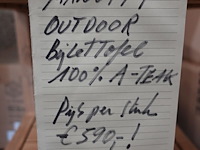 OUTDOOR
BijzetTafel
100% A-TEAK
Prijs per Stuk
€ 590,-!